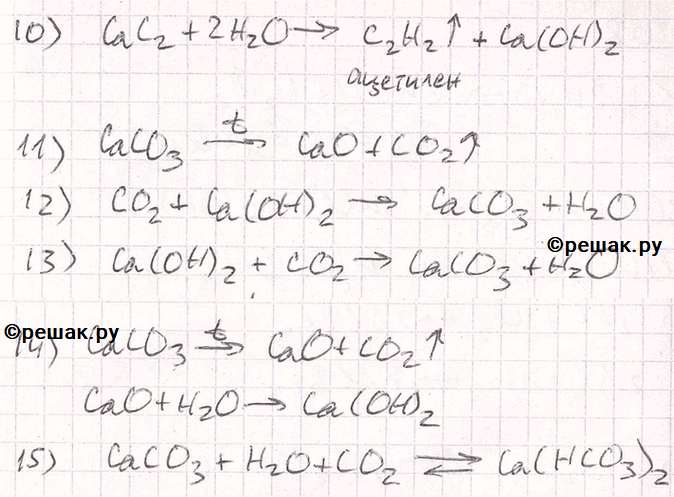 10) CaC₂ + 2H₂O → C₂H₂↑ + Ca(OH)₂
ацетилен
11) CaCO₃ →ᵗ CaO + CO₂↑
12) CO₂ + Ca(OH)₂ → CaCO₃ + H₂O
©решак.ру
13) Ca(OH)₂ + CO₂ → CaCO₃ + H₂O
©решак.ру
14) CaCO₃ →ᵗ CaO + CO₂↑
CaO + H₂O → Ca(OH)₂
15) CaCO₃ + H₂O + CO₂ ⇄ Ca(HCO₃)₂